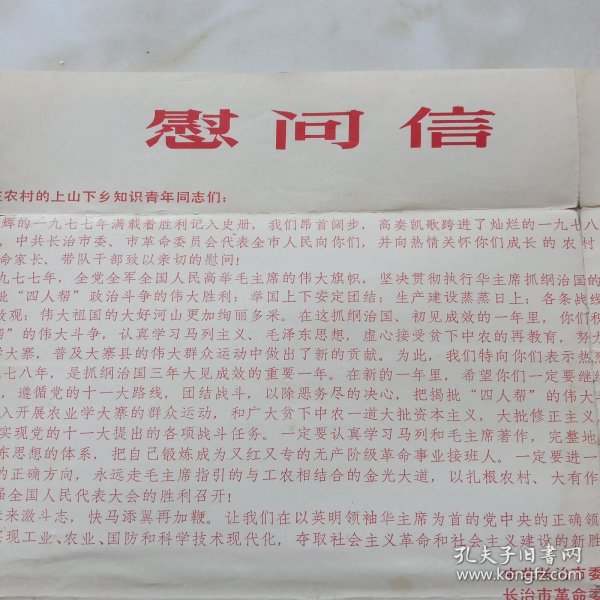 慰问信
农村的上山下乡知识青年同志们：
辉的一九七七年满载着胜利记入史册，我们昂首阔步，高奏凯歌跨进了灿烂的一九七八
，中共长治市委、市革命委员会代表全市人民向你们，并向热情关怀你们成长的农村
命家长、带队干部致以亲切的慰问！
九七七年，全党全军全国人民高举毛主席的伟大旗帜，坚决贯彻执行华主席抓纲治国的
批“四人帮”政治斗争的伟大胜利；举国上下安定团结；生产建设蒸蒸日上；各条战线
观；伟大祖国的大好河山更加绚丽多采。在这抓纲治国、初见成效的一年里，你们积
”的伟大斗争，认真学习马列主义、毛泽东思想，虚心接受贫下中农的再教育，努力
大寨，普及大寨县的伟大群众运动中做出了新的贡献。为此，我们特向你们表示热烈
七八年，是抓纲治国三年大见成效的重要一年。在新的一年里，希望你们一定要继续
，遵循党的十一大路线，团结战斗，以除恶务尽的决心，把揭批“四人帮”的伟大斗
入开展农业学大寨的群众运动，和广大贫下中农一道大批资本主义，大批修正主义
实现党的十一大提出的各项战斗任务。一定要认真学习马列和毛主席著作，完整地
东思想的体系，把自己锻炼成为又红又专的无产阶级革命事业接班人。一定要进一
的正确方向，永远走毛主席指引的与工农相结合的金光大道，以扎根农村、大有作
届全国人民代表大会的胜利召开！
未来激斗志，快马添翼再加鞭。让我们在以英明领袖华主席为首的党中央的正确领
现工业、农业、国防和科学技术现代化，夺取社会主义革命和社会主义建设的新胜
长治市委
长治市革命委
孔夫子旧书网